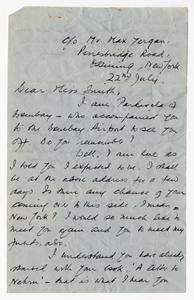 c/o Mr. Max Yergan
Pinesbridge Road,
Ossining, New York
22nd July
Dear Miss Smith,
I am Parkivala of
Bombay - who accompanied you
to the Bombay Airport to see you
off. Do you remember?
Well, I am here as
I told you I expected to be. I shall
be at the above address for a few
days. Is there any chance of your
coming over to this side. I mean
New York? I would so much like to
meet you again and you to meet my
friends, also.
I understand you have already
started with your book, 'A letter to
Nehru' - that is what I mean to